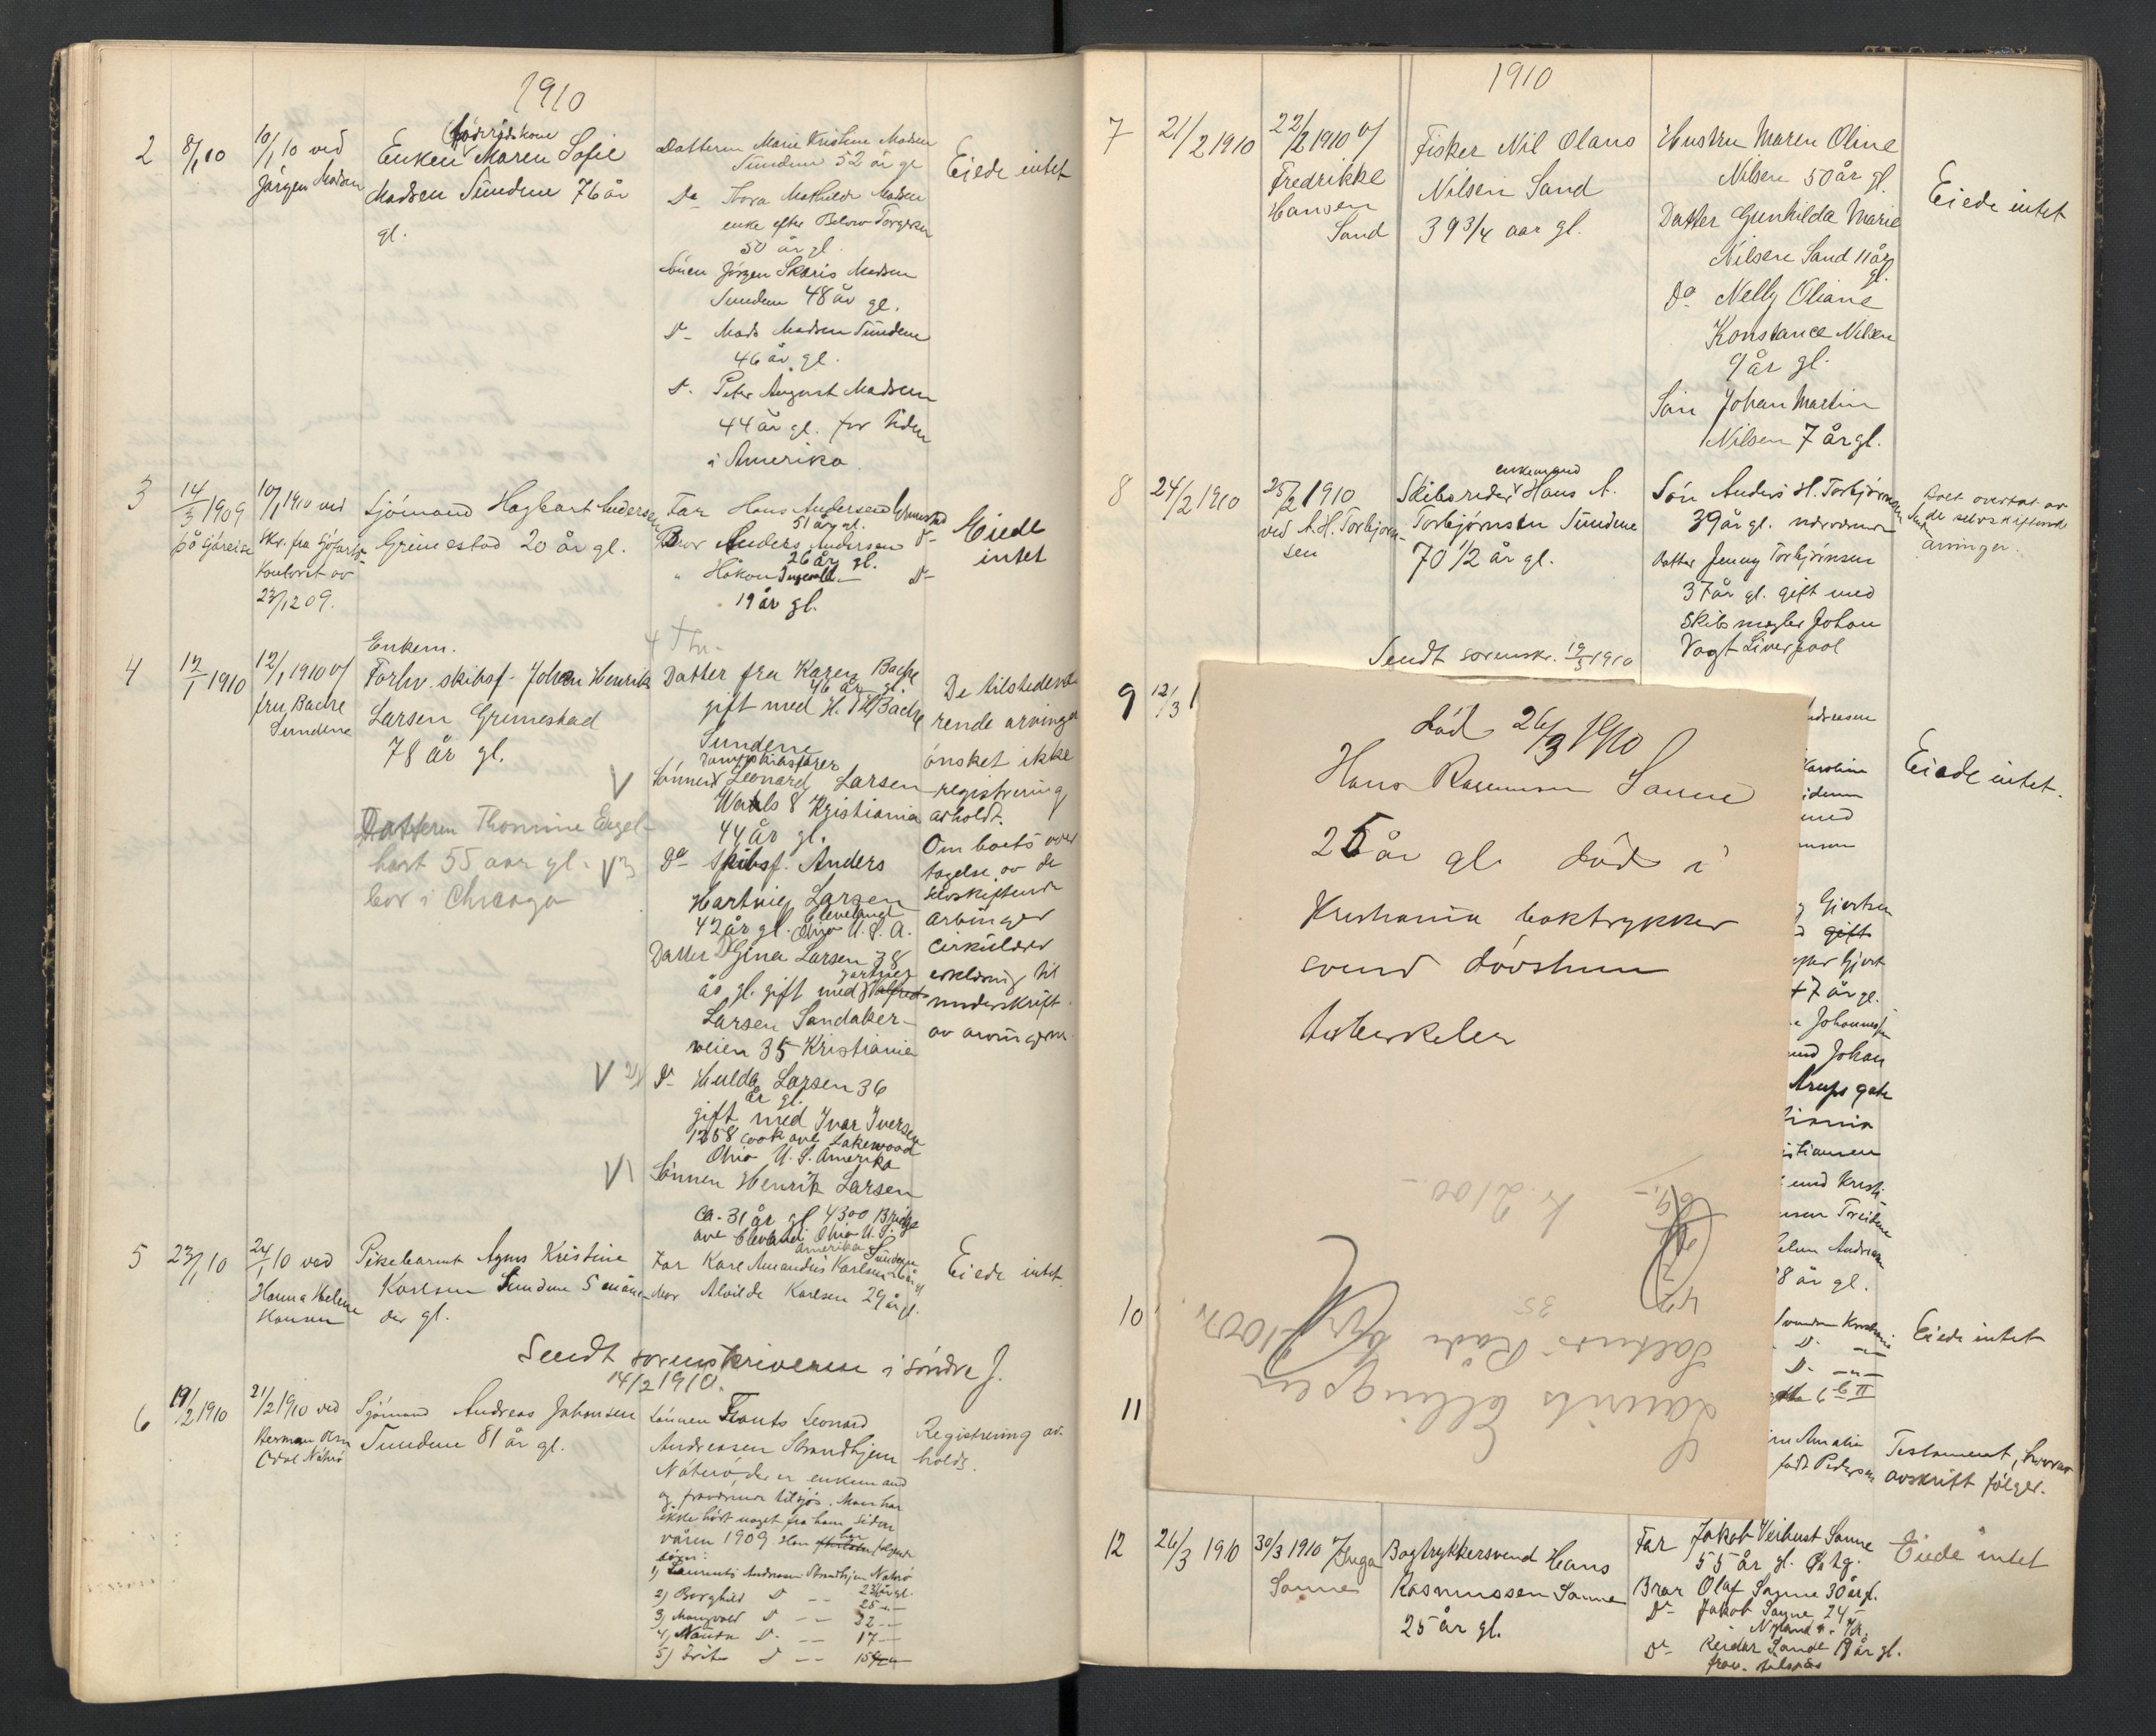 1910
2
8/1 10
10/1 10 ved
Jørgen Madsen
Enken Maren Sofie
Madsen Sundene 76 år
gl.
Datteren Marie Kristine Madsen
Sundene 52 år gl
Do Nora Mathilde Madsen
enke efter
50 år gl.
Sønen Jørgen Skaris Madsen
Sundene 48 år gl.
D- Mads Madsen Sundene
46 år gl.
D- Peter August Madsen
44 år gl. for tiden
i Amerika
Eiede intet
3
14/3 1909
på sjøreise
10/1 1910 ved
skr. fra sjøfarts
kontoret av
23/12 09.
Sjømand Hagbart Andersen
Grimestad 20 år gl.
Far Hans Andersen Grimestad
51 år gl.
Bror Anders Andersen D-
26 år gl.
" Håkon Ingvald - D-
19 år gl.
Eiede
intet
4
12/1 1910
12/1 1910 v/
fru Bache
Sundene
Enkem.
Forhv. skibsf. Johan Henrik
Larsen Grimestad
78 år gl.
Datteren Thomine Engel-
hart 55 aar gl.
bor i Chicago
Datter fru Karen Bache
46 år gl.
gift med H. Bache
Sundene
Sønnen Leonard Larsen
8 Kristiania
44 år gl.
Do Skibsf. Anders
Hartvig Larsen
42 år gl. Cleveland Ohio U.S.A.
Datter Gina Larsen 38
år gl. gift med gartner
Larsen Sandaker-
veien 35 Kristiania
D- Hulda Larsen 36
år gl.
gift med Ivar Iversen
1258 Cook ave Lakewood
Ohio U.S. Amerika
Sønnen Henrik Larsen
ca. 31 år gl 4300 Bridge
ave Cleveland Ohio U.S.
Amerika
De tilstedevæ
rende arvinger
ønsket ikke
registrering
avholdt.
Om boets over
tagelse av de
selvskiftende
arvinger
cirkulerer
erklæring til
underskrift
av arvingerne
5
23/1 10
24/1 10 ved
Hanna Helene
Hansen
Pikebarnet Agnes Kristine
Karlsen Sundene 5 måne-
der gl.
Far Karl Amandus Karlsen Sundene
Mor Alvilde Karlsen 29 år gl.
Eiede intet
Sendt sorenskriveren i søndre J.
14/2 1910.
6
19/2 1910
21/2 1910 ved
Herman
Sjømand Andreas Johansen
Sundene 81 år gl.
Sønnen Leonard
Andreasen Strandhjem
Nøterø, der er enkemand
og fraværende tilsjøs. Man har
ikke hørt noget fra ham siden
våren 1909 Han har følgende
børn:
1) Laurents Andreasen Strandhjem Nøterø
2) Borghild D - 25
3) Mangvald D - 22
4) D - 17
5) D - 15
Registrering av-
holdt.
1910
7
21/2 1910
22/2 1910 v/
Fredrikke
Hansen
Sand
Fisker Nil Olaus
Nilsen Sand
39 3/4 aar gl.
Hustru Maren Oline
Nilsen 50 år gl.
Datter Gunhilda Marie
Nilsen Sand 11 år
gl.
Do Nelly Oliane
Konstance Nilsen
9 år gl.
Søn Johan Martin
Nilsen 7 år gl.
Eiede intet
8
24/2 1910
25/2 1910
ved A.H. Torbjørn-
sen
Skibsreder enkemand Hans A.
Torbjørnsen Sundene
70 1/2 år gl.
Søn Anders H. Torbjørnsen
39 år gl. nærværende
Datter Jenny Torbjørnsen
37 år gl. gift med
Skibsmægler Johan
Vogt Liverpool
Boet overtat av
de selvskiftende
arvinger.
Sendt sorenskr. 19/3 1910
9
12/3
død 26/3 1910
Hans Rasmussen Sanne
25 år gl. død i
Kristiania boktrykker
svend dødsårsak
tuberkeler
Kr. 2100.-
35
Laurits Ellingsen
Eiede intet.
Gjertsen
gift
47 år gl.
Johannes
Johan
Arups gate
8 år gl.
10
Eiede intet
11
Amalie
født Pedersen
Testament, hvorav
avskrift følger.
12
26/3 1910
30/3 1910 v/ Inga
Sanne
Bogtrykkersvend Hans
Rasmussen Sanne
25 år gl.
Far Jakob Veihust Sanne
55 år gl.
Bror Olaf Sanne 30 år gl.
D- Jakob Sanne 24 -
D- Reidar Sande 19 år gl.
frav. tilsjøs
Eiede intet